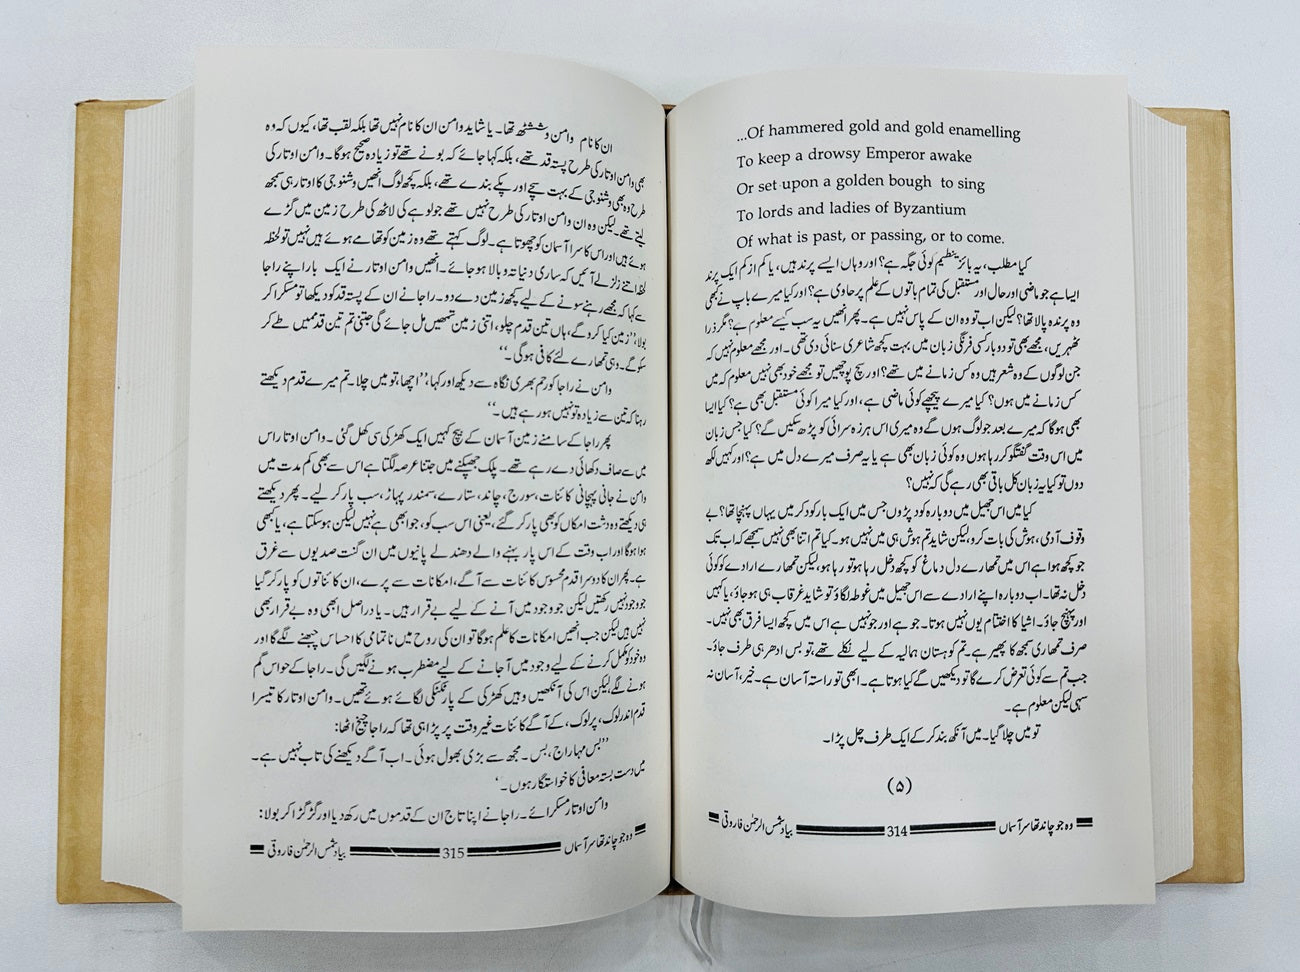 ...Of hammered gold and gold enamelling
To keep a drowsy Emperor awake
Or set upon a golden bough to sing
To lords and ladies of Byzantium
Of what is past, or passing, or to come.
کیا مطلب، یہ بائزینطیم کوئی جگہ ہے؟ اور وہاں ایسے پرند ہیں، یا کم از کم ایک پرند
ایسا ہے جو ماضی اور حال اور مستقبل کی تمام باتوں کے علم پر حاوی ہے؟ اور کیا میرے باپ نے کبھی
وہ پرندہ پالا تھا؟ لیکن اب تو وہ ان کے پاس نہیں ہے۔ پھر انھیں یہ سب کیسے معلوم ہے؟ مگر ذرا
ٹھہریں، مجھے بھی تو دو بار کسی فرنگی زبان میں بہت کچھ شاعری سنائی دی تھی۔ اور مجھے معلوم نہیں کہ
جن لوگوں کے وہ شعر ہیں وہ کس زمانے میں تھے؟ اور سچ پوچھیں تو مجھے خود بھی نہیں معلوم کہ میں
کس زمانے میں ہوں؟ کیا میرے پیچھے کوئی ماضی ہے، اور کیا میرا کوئی مستقبل بھی ہے؟ کیا ایسا
بھی ہوگا کہ میرے بعد جو لوگ ہوں گے وہ میری اس ہرزہ سرائی کو پڑھ سکیں گے؟ کیا جس زبان
میں اس وقت گفتگو کر رہا ہوں وہ کوئی زبان بھی ہے یا یہ صرف میرے دل میں ہے؟ اور کہیں لکھ
دوں تو کیا یہ زبان کل باقی بھی رہے گی کہ نہیں؟
کیا میں اس جھیل میں دوبارہ کود پڑوں جس میں ایک بار کود کر میں یہاں پہنچا تھا؟ بے
وقوف آدمی، ہوش کی بات کرو، لیکن شاید تم ہوش ہی میں نہیں ہو۔ کیا تم اتنا بھی نہیں سمجھے کہ اب تک
جو کچھ ہوا ہے اس میں تمھارے دل دماغ کو کچھ دخل رہا ہو تو رہا ہو، لیکن تمھارے ارادے کو کوئی
دخل نہ تھا۔ اب دوبارہ اپنے ارادے سے اس جھیل میں غوطہ لگاؤ تو شاید غرقاب ہی ہو جاؤ، یا کہیں
اور پہنچ جاؤ۔ اشیا کا اختتام یوں نہیں ہوتا۔ جو ہے اور جو نہیں ہے اس میں کچھ ایسا فرق بھی نہیں۔
صرف تمھاری سمجھ کا پھیر ہے۔ تم کوہستان ہمالیہ کے لیے نکلے تھے، تو بس ادھر ہی طرف جاؤ۔
جب تم سے کوئی تعرض کرے گا تو دیکھیں گے کیا ہوتا ہے۔ ابھی تو راستہ آسان ہے۔ خیر، آسان نہ
سہی لیکن معلوم ہے۔
تو میں چلا گیا۔ میں آنکھ بند کر کے ایک طرف چل پڑا۔
(۵)
وہ جو چاند تھا سر آسماں 314 بیاد شمس الرحمٰن فاروقی
ان کا نام وامن وششٹھ تھا۔ یا شاید وامن ان کا نام نہیں تھا بلکہ لقب تھا، کیوں کہ وہ
بھی وامن اوتار کی طرح پستہ قد تھے، بلکہ کہا جائے کہ بونے تھے تو زیادہ صحیح ہوگا۔ وامن اوتار کی
طرح وہ بھی وشنو جی کے بہت سچے اور پکے بندے تھے، بلکہ کچھ لوگ انھیں وشنو جی کا اوتار ہی سمجھ
لیتے تھے۔ لیکن وہ ان وامن اوتار کی طرح نہیں تھے جو لوہے کی لاٹھ کی طرح زمین میں گڑے
ہوئے ہیں اور اس کا سرا آسمان کو چھوتا ہے۔ لوگ کہتے تھے وہ زمین کو تھامے ہوئے ہیں نہیں تو لحظہ
لحظہ اتنے زلزلے آئیں کہ ساری دنیا تہ و بالا ہو جائے۔ انھیں وامن اوتار نے ایک بار اپنے راجا
سے کہا کہ مجھے رہنے سونے کے لیے کچھ زمین دے دو۔ راجا نے ان کے پستہ قد کو دیکھا تو مسکرا کر
بولا، ’’زمین کیا کرو گے، ہاں تین قدم چلو، اتنی زمین تمھیں مل جائے گی جتنی تم تین قدممیں طے کر
سکو گے۔ وہی تمھارے لئے کافی ہوگی۔‘‘
وامن نے راجا کو رحم بھری نگاہ سے دیکھ اور کہا، ’’اچھا، تو میں چلا۔ تم میرے قدم دیکھتے
رہنا کہ تین سے زیادہ تو نہیں ہو رہے ہیں۔‘‘
پھر راجا کے سامنے زمین آسمان کے بیچ کہیں ایک کھڑکی سی کھل گئی۔ وامن اوتار اس
میں سے صاف دکھائی دے رہے تھے۔ پلک جھپکنے میں جتنا عرصہ لگتا ہے اس سے بھی کم مدت میں
وامن نے جانی پہچانی کائنات، سورج، چاند، ستارے، سمندر پہاڑ، سب پار کر لیے۔ پھر دیکھتے
ہی دیکھتے وہ دشت امکاں کو بھی پار کر گئے، یعنی اس سب کو، جو ابھی ہے نہیں لیکن ہو سکتا ہے، یا کبھی
ہوا ہوگا اور اب وقت کے اس پار بہنے والے دھندلے پانیوں میں ان گنت صدیوں سے غرق
ہے۔ پھر ان کا دوسرا قدم محسوس کائنات سے آگے، امکانات سے پرے، ان کائناتوں کو پار کر گیا
جو وجود نہیں رکھتیں لیکن جو وجود میں آنے کے لیے بے قرار ہیں۔ یا دراصل ابھی وہ بے قرار بھی
نہیں ہیں لیکن جب انھیں امکانات کا علم ہوگا تو ان کی روح میں ناتمامی کا احساس چبھنے لگے گا اور
وہ خود کو مکمل کرنے کے لیے وجود میں آ جانے کے لیے مضطرب ہونے لگیں گی۔ راجا کے حواس گم
ہونے لگے، لیکن اس کی آنکھیں وہیں کھڑکی کے پار ٹکٹکی لگائے ہوئے تھیں۔ وامن اوتار کا تیسرا
قدم اندرلوک، پرلوک، کے آگے کائنات غیر وقت پر پڑا ہی تھا کہ راجا چیخ اٹھا:
’’بس مہاراج، بس۔ مجھ سے بڑی بھول ہوئی۔ اب آگے دیکھنے کی تاب نہیں ہے۔
میں دست بستہ معافی کا خواستگار ہوں۔‘
وامن اوتار مسکرائے۔ راجا نے اپنا تاج ان کے قدموں میں رکھ دیا اور گڑگڑا کر بولا:
وہ جو چاند تھا سر آسماں 315 بیاد شمس الرحمٰن فاروقی